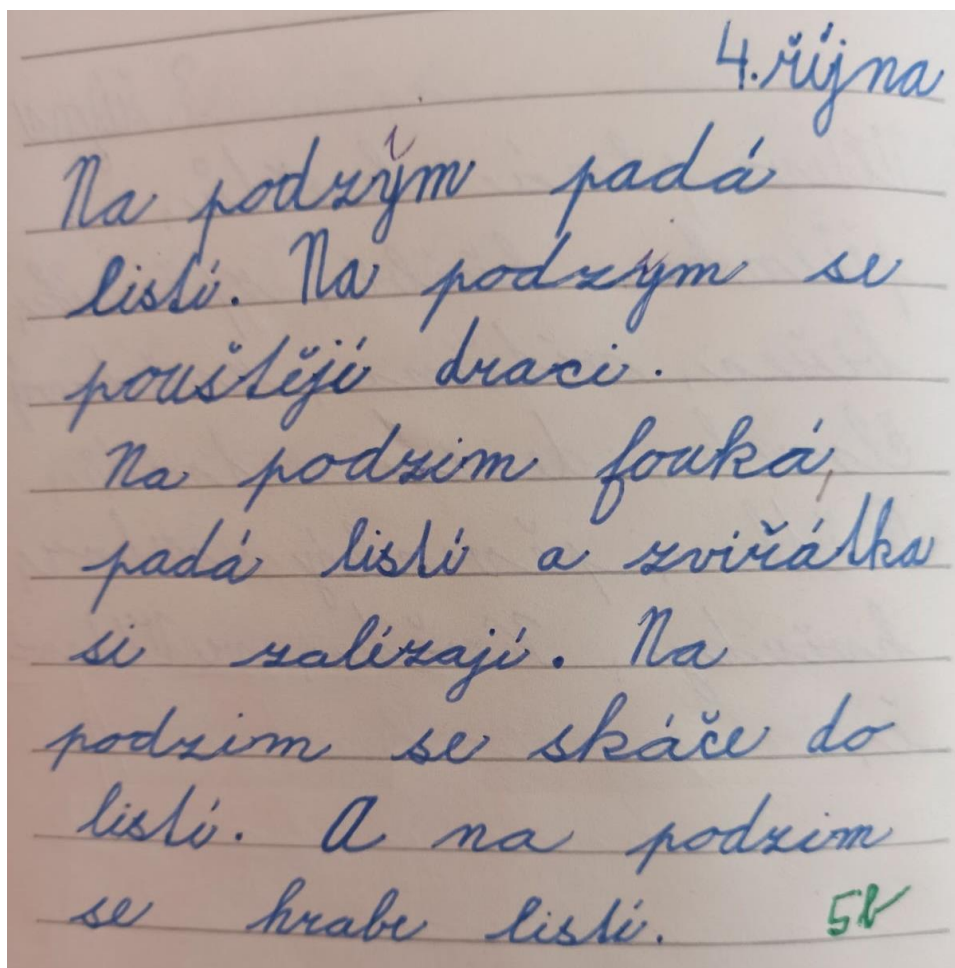 4. října
Na podzým padá
listí. Na podzym se
pouštějí draci.
Na podzim fouká,
padá listí a zvířátka
si zalízají. Na
podzim se skáče do
listí. A na podzim
se hrabe listí. 5b